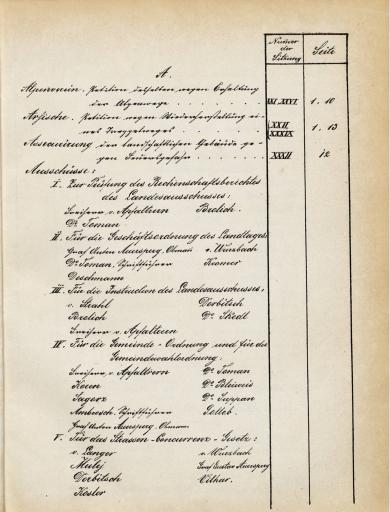 Numer der Sitzung
Seite
A.
Alpenverein. Petition desselben wegen Erhaltung
der Alpenwege XXI. XXVI. 1. 10
Petition wegen Wiederherstellung ei-
nes XXII, XXXIX 1. 13
Assecurirung der landschaftlichen Gebäude ge-
gen Feuersgefahr XXXII 12
Ausschüsse:
I. Zur Prüfung des Rechenschaftsberichtes
des Landesausschusses:
Freiherr v. Apfaltern Brolich.
Dr. Toman
II. Für die Geschäftsordnung des Landtages:
Graf Anton Auersperg, Obman v. Wurzbach
Dr. Toman, Schriftführer Kromer
Deschmann
III. Für die Instruction des Landesausschusses:
v. Strahl Derbitsch
Brolich Dr. Skedl
Freiherr v. Apfaltern
IV. Für die Gemeinde-Ordnung und für die
Gemeindewahlordnung:
Freiherr v. Apfaltern Dr. Toman
Koren Dr. Bleiweis
Sagorz Dr. Suppan
Ambrosch, Schriftführer Golleb.
Graf Anton Auersperg, Obman
V. Für das Strassen-Concurrenz-Gesetz:
v. Langer v. Wurzbach
Mulej Graf Gustav Auersperg
Derbitsch Vilhar.
Kosler